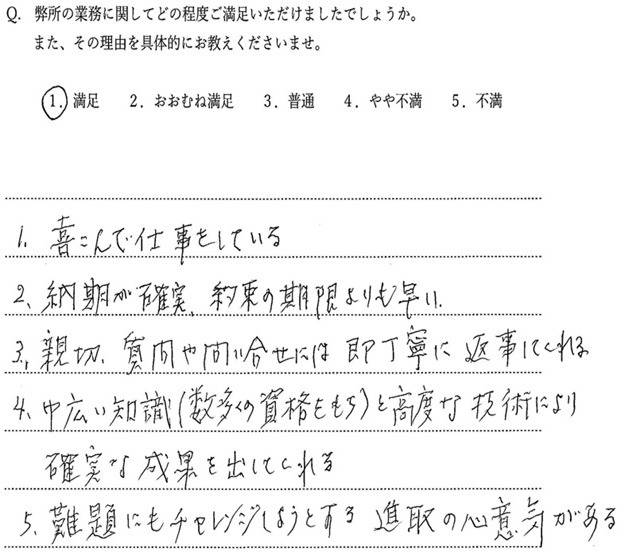 Q. 弊所の業務に関してどの程度ご満足いただけましたでしょうか。
また、その理由を具体的にお教えくださいませ。
1. 満足 2. おおむね満足 3. 普通 4. やや不満 5. 不満
1、喜こんで仕事をしている
2、納期が確実、約束の期限よりも早い、
3、親切、質問や問い合せには即丁寧に返事してくれる
4、巾広い知識(数多くの資格をもち)と高度な技術により
確実な成果を出してくれる
5、難題にもチャレンジしようとする進取の心意気がある